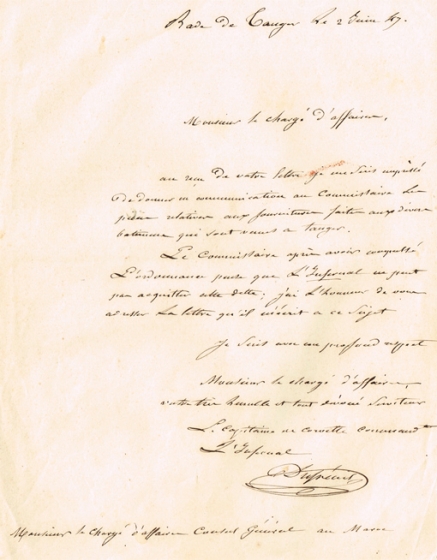 Rade de Tanger le 2 Juin 47.
Monsieur le chargé d'affaires,
au reçu de votre lettre je me suis empressé
de donner en communication au Commissaire les
pièces relatives aux fournitures faites aux divers
batiments qui sont venus a tanger.
Le Commissaire après avoir compulsé
L'ordonnance pense que L'Infernal ne peut
pas acquitter cette dette; j'ai L'honneur de vous
adresser La lettre qu'il m'écrit a ce Sujet
Je Suis avec un profond respect
Monsieur le chargé d'affaires,
votre très humble et tout dévoué Serviteur
Le Capitaine de corvette commandt
L'Infernal
Monsieur le chargé d'affaires Consul Général au Maroc